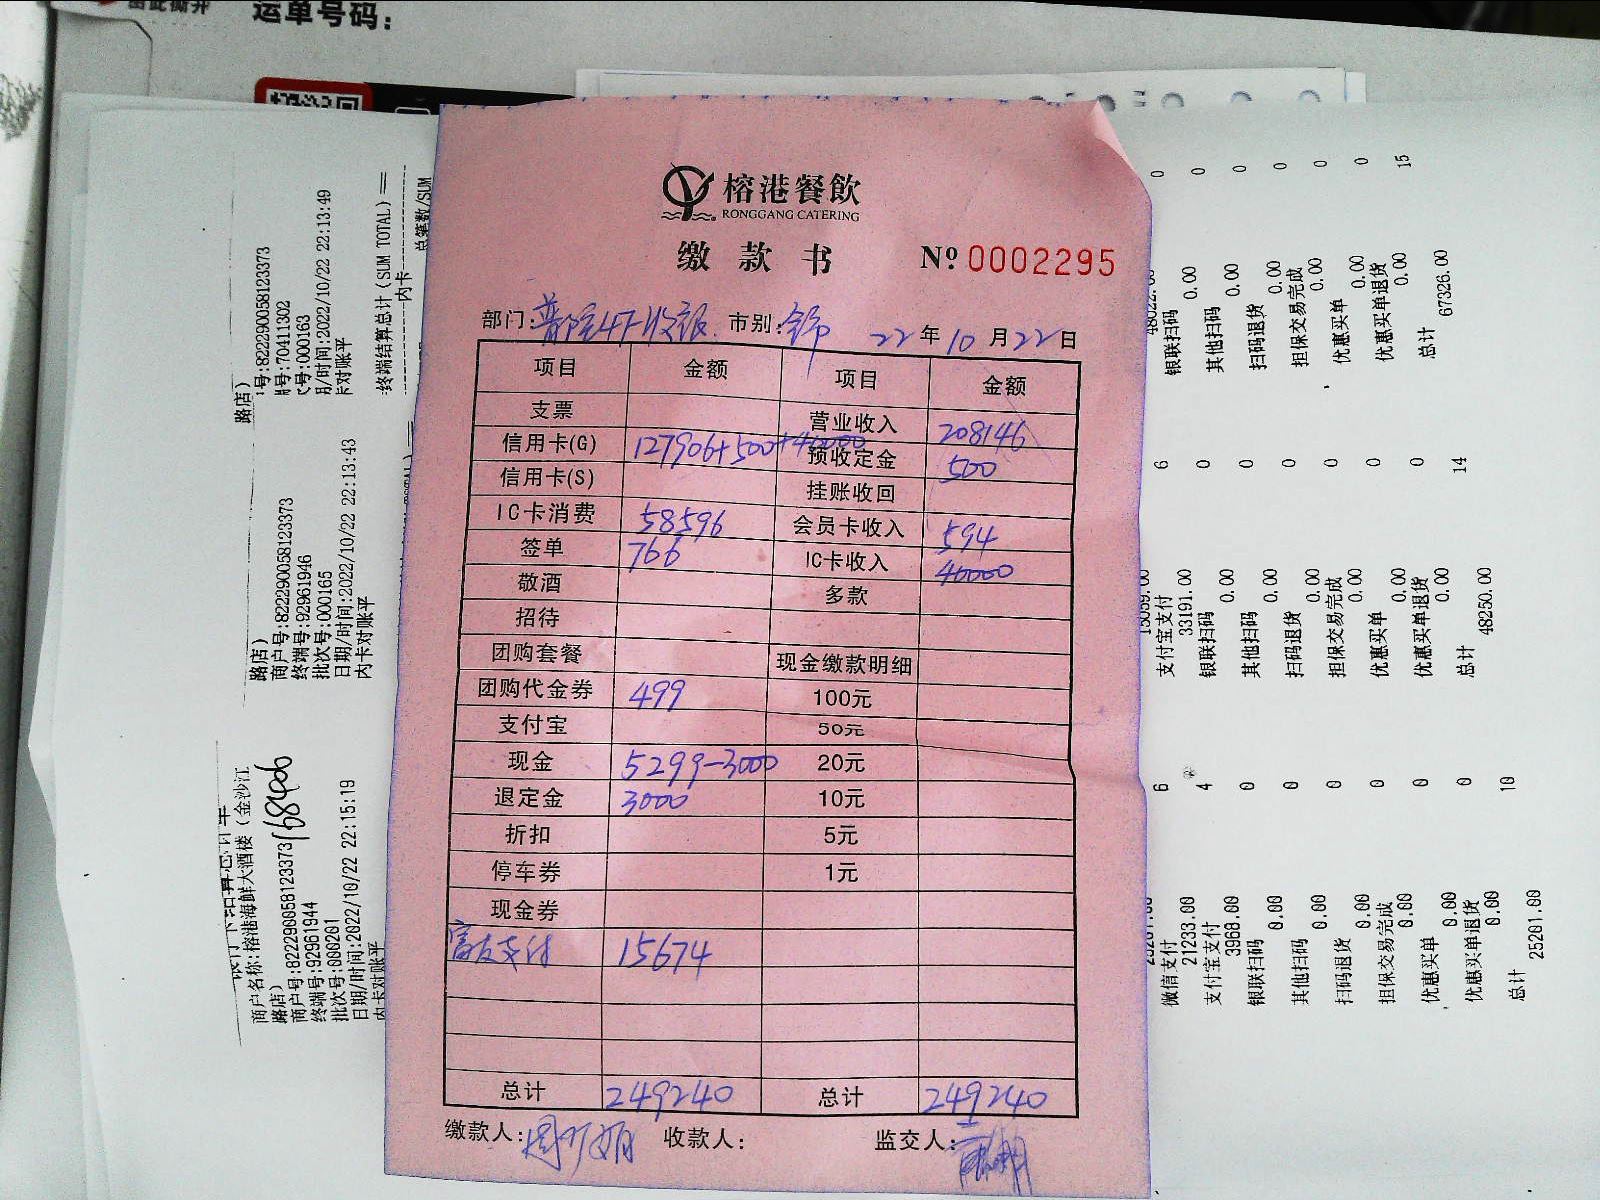 运单号码：
榕港餐飲
RONGGANG CATERING
缴款书 Nº 0002295
部门: 普陀4F收银 市别: 全市 22年10月22日
项目 金额 项目 金额
支票 营业收入 208146
信用卡(G) 127906+500+40000 预收定金 500
信用卡(S) 挂账收回
IC卡消费 58596 会员卡收入 594
签单 766 IC卡收入 40000
敬酒 多款
招待
团购套餐 现金缴款明细
团购代金券 499 100元
支付宝 50元
现金 5299-3000 20元
退定金 3000 10元
折扣 5元
停车券 1元
现金券
富友支付 15674
总计 249240 总计 249240
缴款人: 收款人: 监交人:
路店)
号:822290058123373
号:70411302
号:000163
/时间:2022/10/22 22:13:49
卡对账平
终端结算总计(SUM TOTAL)
内卡
总笔数/SUM
路店)
商户号:822290058123373
终端号:92961946
批次号:000165
日期/时间:2022/10/22 22:13:43
内卡对账平
商户名称:榕港海鲜大酒楼(金沙江
路店)
商户号:822290058123373
168406
终端号:92961944
批次号:000201
日期/时间:2022/10/22 22:15:19
内卡对账平
0
银联扫码 0
0.00
其他扫码 0
0.00
扫码退货 0
0.00
担保交易完成 0
0.00
优惠买单 0
0.00
优惠买单退货 0
0.00
总计 15
67326.00
支付宝支付 6
33191.00
银联扫码 0
0.00
其他扫码 0
0.00
扫码退货 0
0.00
担保交易完成 0
0.00
优惠买单 0
0.00
优惠买单退货 0
0.00
总计 14
48250.00
微信支付 6
21233.00
支付宝支付 4
3968.00
银联扫码 0
0.00
其他扫码 0
0.00
扫码退货 0
0.00
担保交易完成 0
0.00
优惠买单 0
0.00
优惠买单退货 0
0.00
总计 10
25201.00